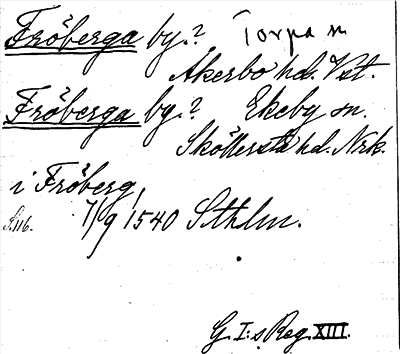 Fröberga by.? Torpa sn
Åkerbo hd. Vst.
Fröberga by.? Ekeby sn.
Sköllersta hd. Nrk.
i Fröberg,
S. 116. 7/9 1540 Sthlm.
G. I:s Reg. XIII.